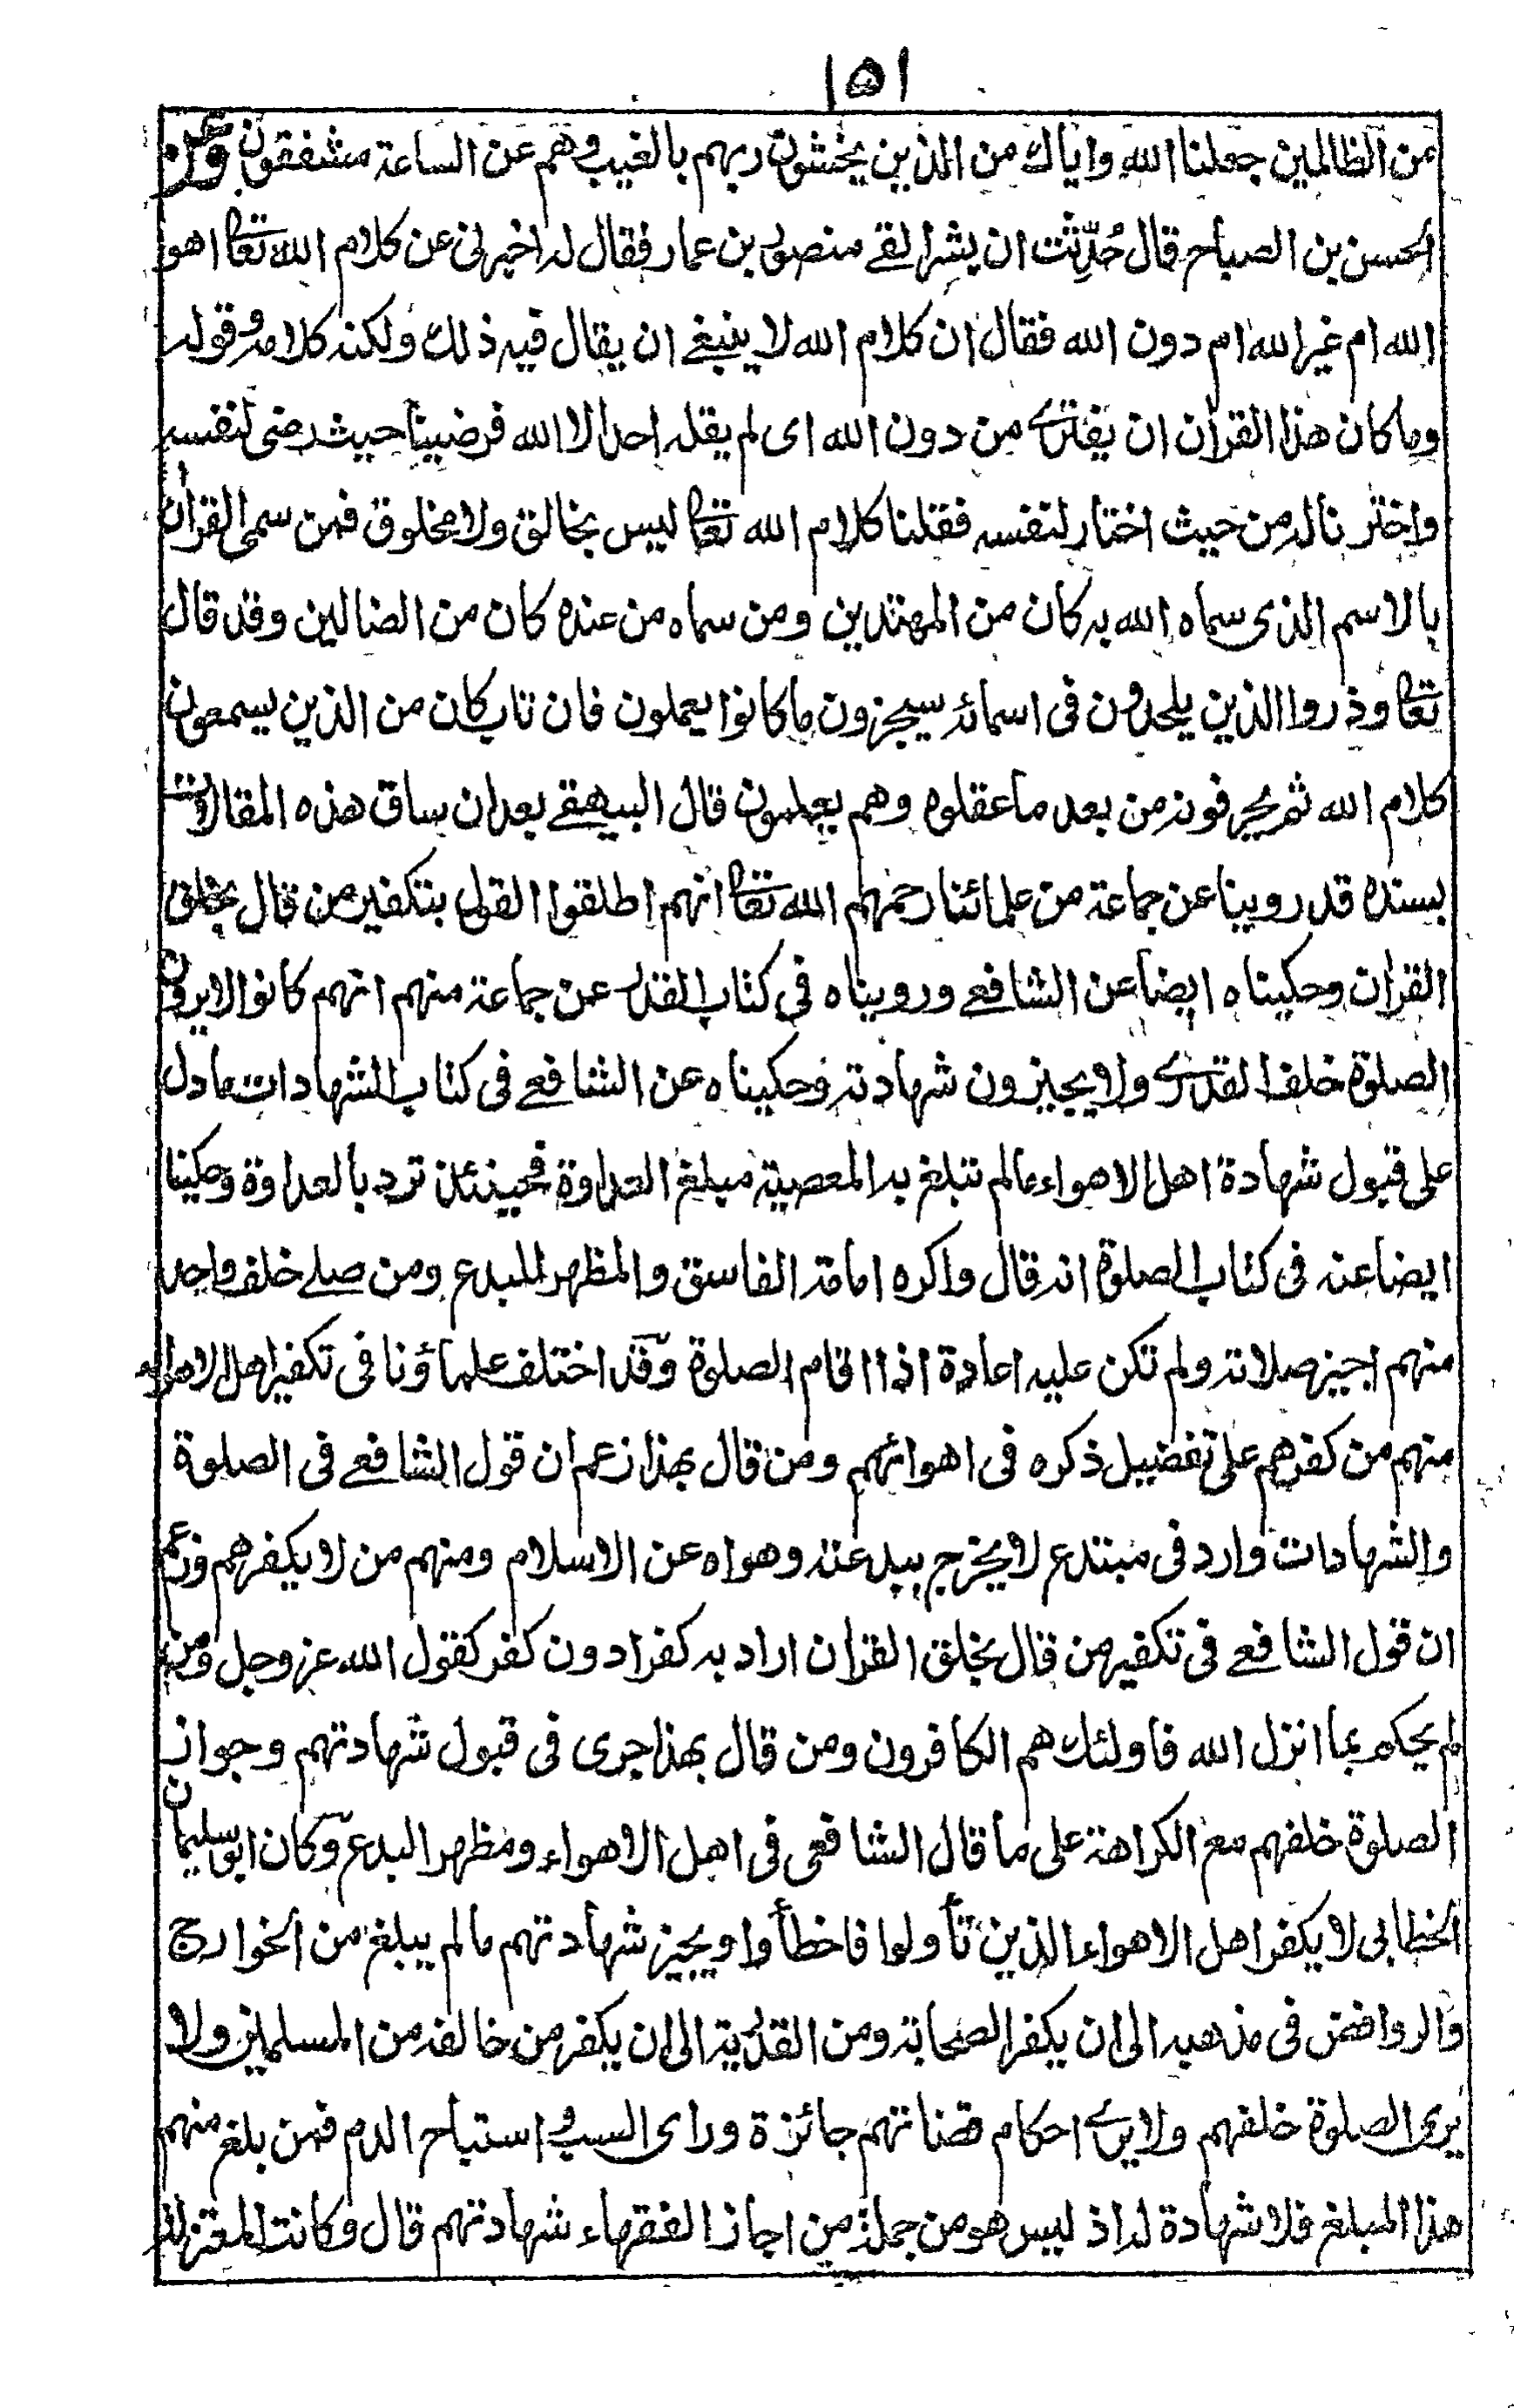 ١٥١
من الظالمين جعلنا الله واياك من الذين يخشون ربهم بالغيب وهم عن الساعة مشفقون وعن
الحسن بن الصباح قال حُدِّثت ان بشرا لقے منصور بن عمار فقال له اخبرنى عن كلام الله تعا اهو
الله ام غير الله ام دون الله فقال ان كلام الله لا ينبغے ان يقال فيه ذلك ولكنه كلامه وقوله
وما كان هذا القرآن ان يفترے من دون الله اى لم يقله احد الا الله فرضينا حيث رضى لنفسه
واخترنا له من حيث اختار لنفسه فقلنا كلام الله تعا ليس بخالق ولا مخلوق فمن سمى القرآن
بالاسم الذى سماه الله به كان من المهتدين ومن سماه من عنده كان من الضالين وقد قال
تعا وذروا الذين يلحدون فى اسمائه سيجزون ما كانوا يعملون فان تاب كان من الذين يسمعون
كلام الله ثم يحرفونه من بعد ما عقلوه وهم يعلمون قال البيهقے بعد ان ساق هذه المقالات
بسنده قد روينا عن جماعة من علمائنا رحمهم الله تعا انهم اطلقوا القول بتكفير من قال بخلق
القرآن وحكيناه ايضا عن الشافعے ورويناه فى كتاب القدر عن جماعة منهم انهم كانوا لا يرون
الصلوة خلف القدرے ولا يجيزون شهادته وحكيناه عن الشافعے فى كتاب الشهادات ما دل
على قبول شهادة اهل الاهواء مالم تبلغ به المعصية مبلغ العداوة فحينئذ ترد بالعداوة وحكينا
ايضا عنه فى كتاب الصلوة انه قال واكره امامة الفاسق والمظهر للبدع ومن صلے خلف واحد
منهم اجيز صلاته ولم تكن عليه اعادة اذا اقام الصلوة وقد اختلف علماؤنا فى تكفير اهل الاهواء
منهم من كفرهم على تفضيل ذكره فى اهوائهم ومن قال بهذا زعم ان قول الشافعے فى الصلوة
والشهادات وارد فى مبتدع لا يخرج ببدعته وهواه عن الاسلام ومنهم من لا يكفرهم وزعم
ان قول الشافعے فى تكفير من قال بخلق القرآن اراد به كفرا دون كفر كقول الله عز وجل ومن
لم يحكم بما انزل الله فاولئك هم الكافرون ومن قال بهذا جرى فى قبول شهادتهم وجواز
الصلوة خلفهم مع الكراهة على ما قال الشافعى فى اهل الاهواء ومظهر البدع وكان ابو سليمان
الخطابى لا يكفر اهل الاهواء الذين تأولوا فاخطأوا ويجيز شهادتهم ما لم يبلغ من الخوارج
والروافض فى مذهبه الى ان يكفر الصحابة ومن القدرية الى ان يكفر من خالفه من المسلمين ولا
يرى الصلوة خلفهم ولا يرے احكام قضاتهم جائزة وراى السيف استباح الدم فمن بلغ منهم
هذا المبلغ فلا شهادة له اذ ليس هو من جملة من اجاز الفقهاء شهادتهم قال وكانت المعتزلة